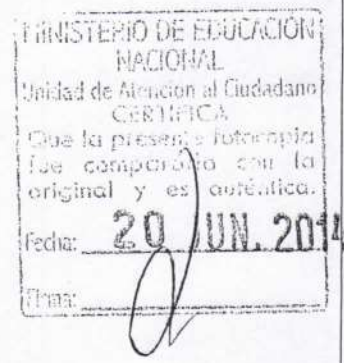 MINISTERIO DE EDUCACION
NACIONAL
Unidad de Atencion al Ciudadano
CERTIFICA
Que la presente fotocopia
fue comparada con la
original y es auténtica.
Fecha: 20 JUN. 2014
Firma: